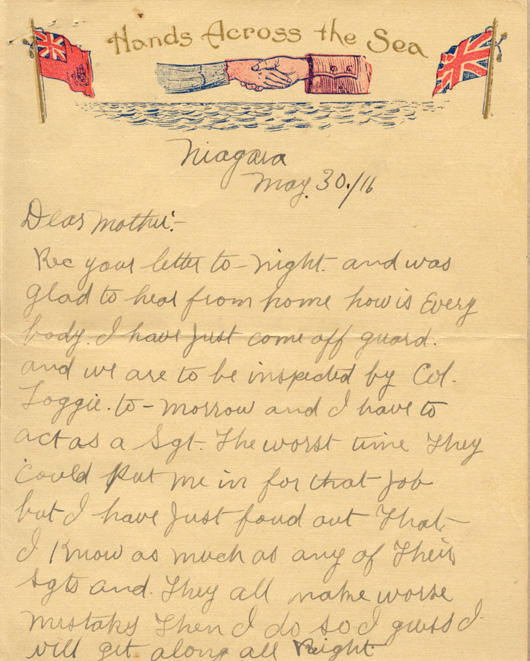 Hands Across the Sea
Niagara
May. 30./16
Dear Mother:-
Rec your letter to-night. and was
glad to hear from home how is Every
body. I have Just come off guard.
and we are to be inspected by Col.
Loggie. to-morrow and I have to
act as a Sgt. The worst time They
could put me in for that Job
but I have Just foud out That-
I Know as much as any of Their
Sgts and. They all make worse
mistaks Then I do so I guess I
will get along all Right